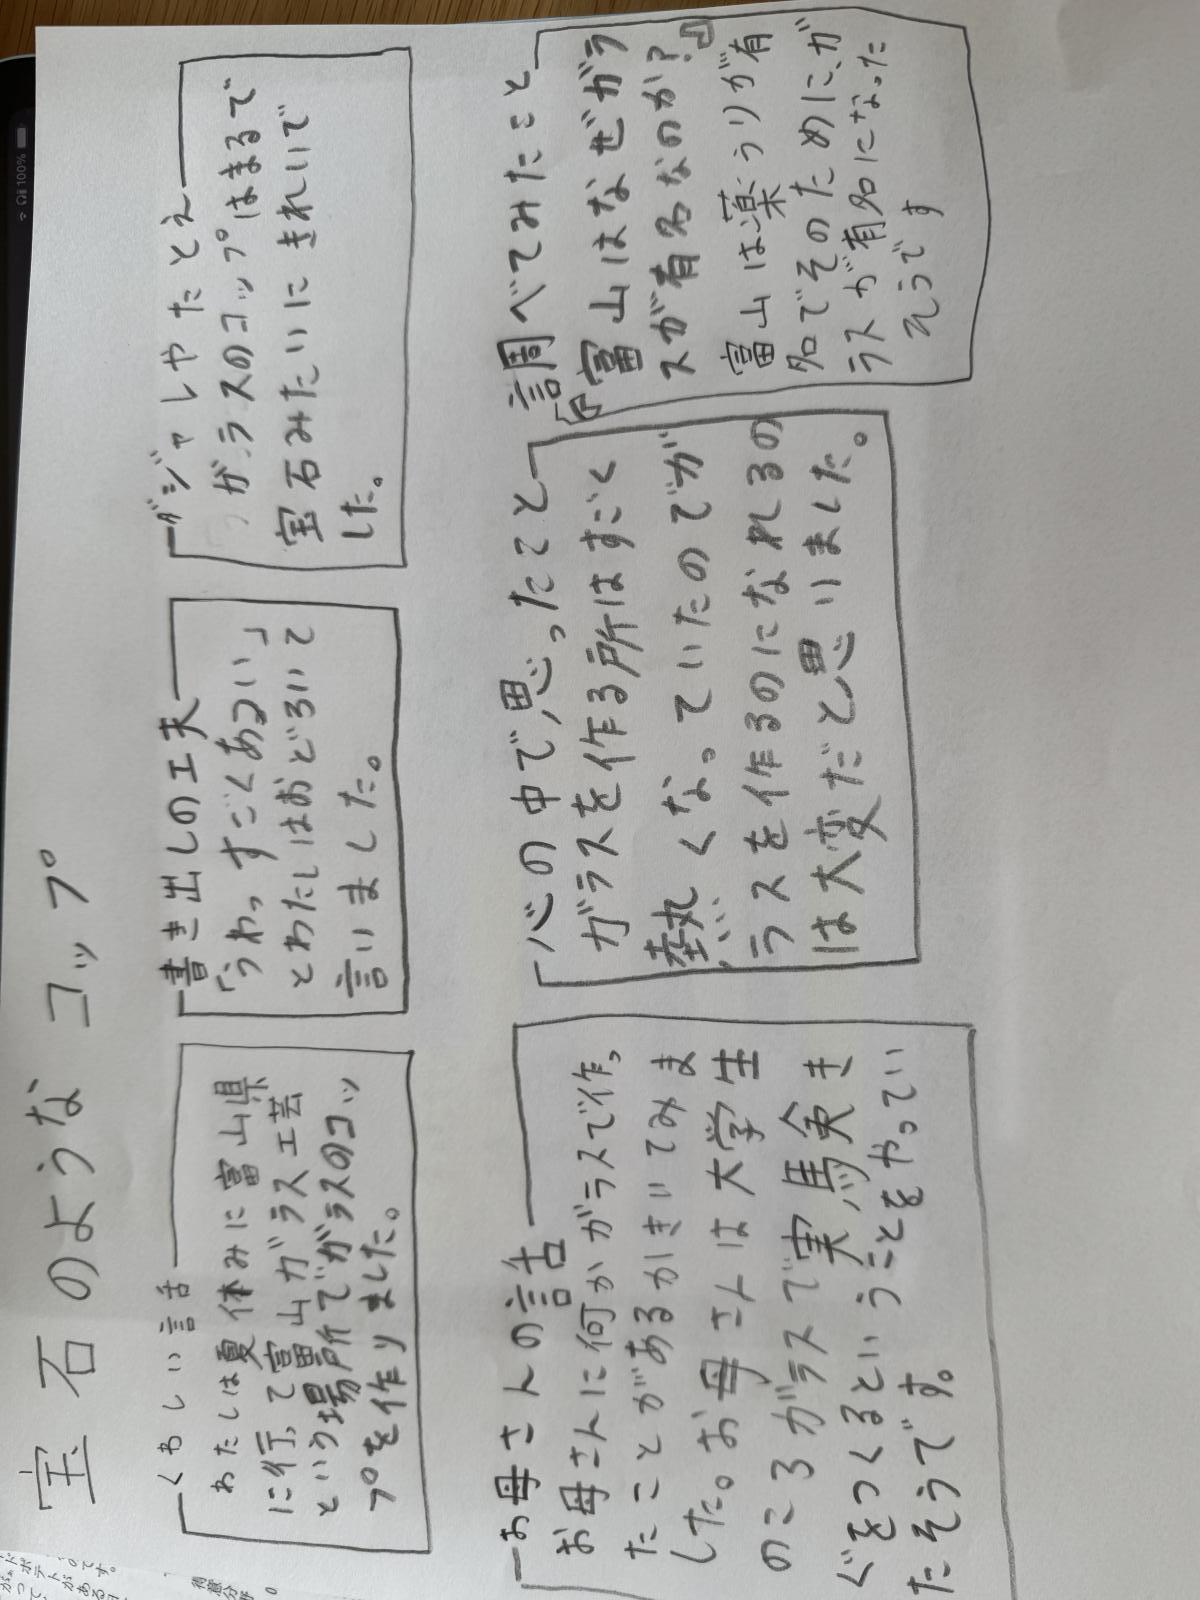 宝石のようなコップ
くわしい言話
わたしは夏休みに富山県
に行って富山ガラス工芸
という場所でガラスのコッ
プを作りました。
書き出しの工夫
「うわっすごくあつい」
とわたしはおどろいて
言いました。
ダジャレやたとえ
ガラスのコップはまるで
宝石みたいにきれいで
した。
お母さんの言話
お母さんに何かガラスで作っ
たことがあるかきいてみま
した。お母さんは大学生
のころガラスで実馬食き
ぐをつくるということをやってい
たそうです。
心の中で思ったこと
ガラスを作る所はすごく
熱くなっていたのでガ
ラスを作るのになれるの
は大変だと思いました。
調べてみたこと
『富山はなぜガラ
スが有名なのか?』
富山は薬うりが有
名でそのために、ガ
ラスが有名になった
そうです
100%